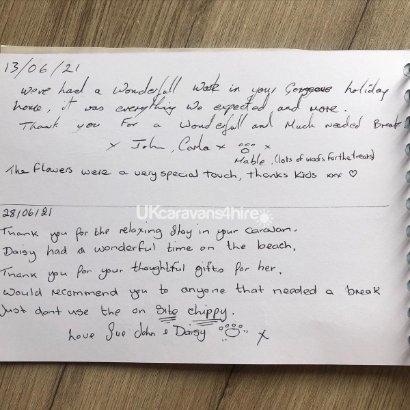 13/06/21
We've had a wonderfull week in your Gorgeous holiday
home, it was everything we expected and more.
Thank you For a Wonderfull and Much needed Break
x John, Carla x x
Mable, (lots of woofs for the treats)
The Flowers were a very special touch, thanks kids xxx ♡
UKcaravans4hire
28/06/21
Thank you for the relaxing stay in your caravan.
Daisy had a wonderful time on the beach,
Thank you for your thoughtful gifts for her.
Would recommend you to anyone that needed a break
Just dont use the on site chippy.
Love Sue John & Daisy x